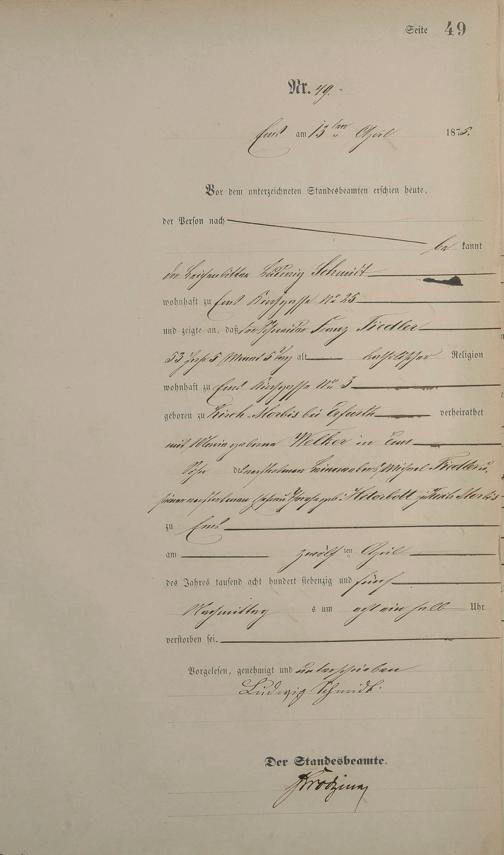 Seite 49
Nr. 49.
Ems am 13ten April 1875.
Vor dem unterzeichneten Standesbeamten erschien heute,
der Person nach
be kannt
der Leichenbitter Ludwig Schmidt
wohnhaft zu Ems No 25
und zeigte an, daß der Schneider Franz Fiedler
53 Jahre 5 Monat 5 Tag alt katholischer Religion
wohnhaft zu Ems No 3
geboren zu Kirch-Worbis bei Erfurth verheirathet
mit Maria geborne Welker in Ems
Sohn des verstorbenen Leinewebers Michael Fiedler u.
seiner verstorbenen Ehefrau geb. Kirch-Worbis
zu Ems
am zwölf ten April
des Jahres tausend acht hundert siebenzig und fünf
Nachmittag s um acht ein halb Uhr
verstorben sei.
Vorgelesen, genehmigt und unterschrieben
Ludwig Schmidt.
Der Standesbeamte.